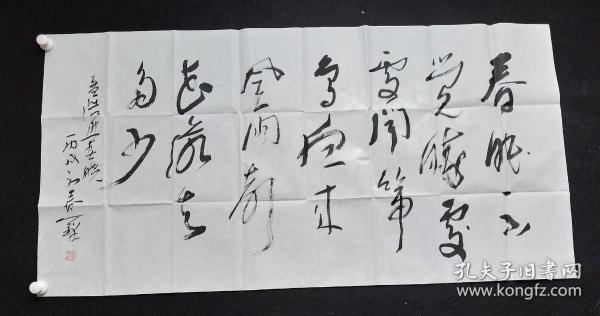 春眠不
觉晓處
處闻啼
鸟夜来
风雨声
花落知
多少
孟浩然春晓
丙戌初春
孔夫子旧书网
www.kongfz.com